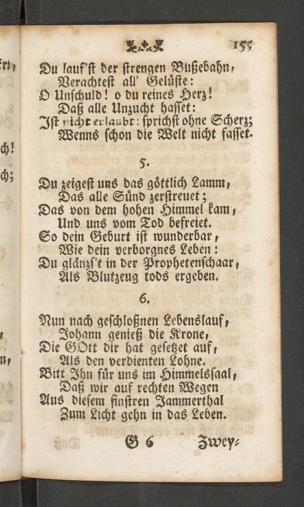 155
Du lauf'st der strengen Bußebahn,
Verachtest all' Gelüste:
O Unschuld! o du reines Herz!
Daß alle Unzucht hasset:
Ist nicht erlaubt: sprichst ohne Scherz;
Wenns schon die Welt nicht fasset.
5.
Du zeigest uns das göttlich Lamm,
Das alle Sünd zerstreuet;
Das von dem hohen Himmel kam,
Und uns vom Tod befreiet.
So dein Geburt ist wunderbar,
Wie dein verborgnes Leben:
Du glänzs't in der Prophetenschaar,
Als Blutzeug tods ergeben.
6.
Nun nach geschloßnen Lebenslauf,
Johann genieß die Krone,
Die GOtt dir hat gesetzet auf,
Als den verdienten Lohne.
Bitt Ihn für uns im Himmelssaal,
Daß wir auf rechten Wegen
Aus diesem finstren Jammerthal
Zum Licht gehn in das Leben.
G 6 Zwey-